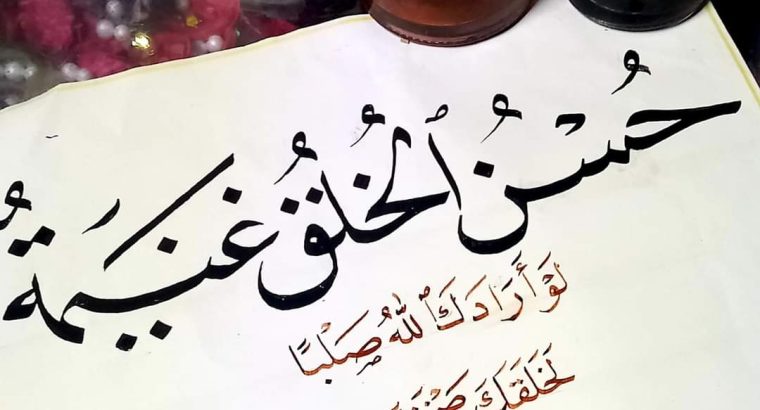 حُسْنُ ٱلْخُلُقِ غَنِيمَةٌ
لَوْ أَرَادَكَ ٱللهُ صَلْبًا
لَخَلَقَكَ